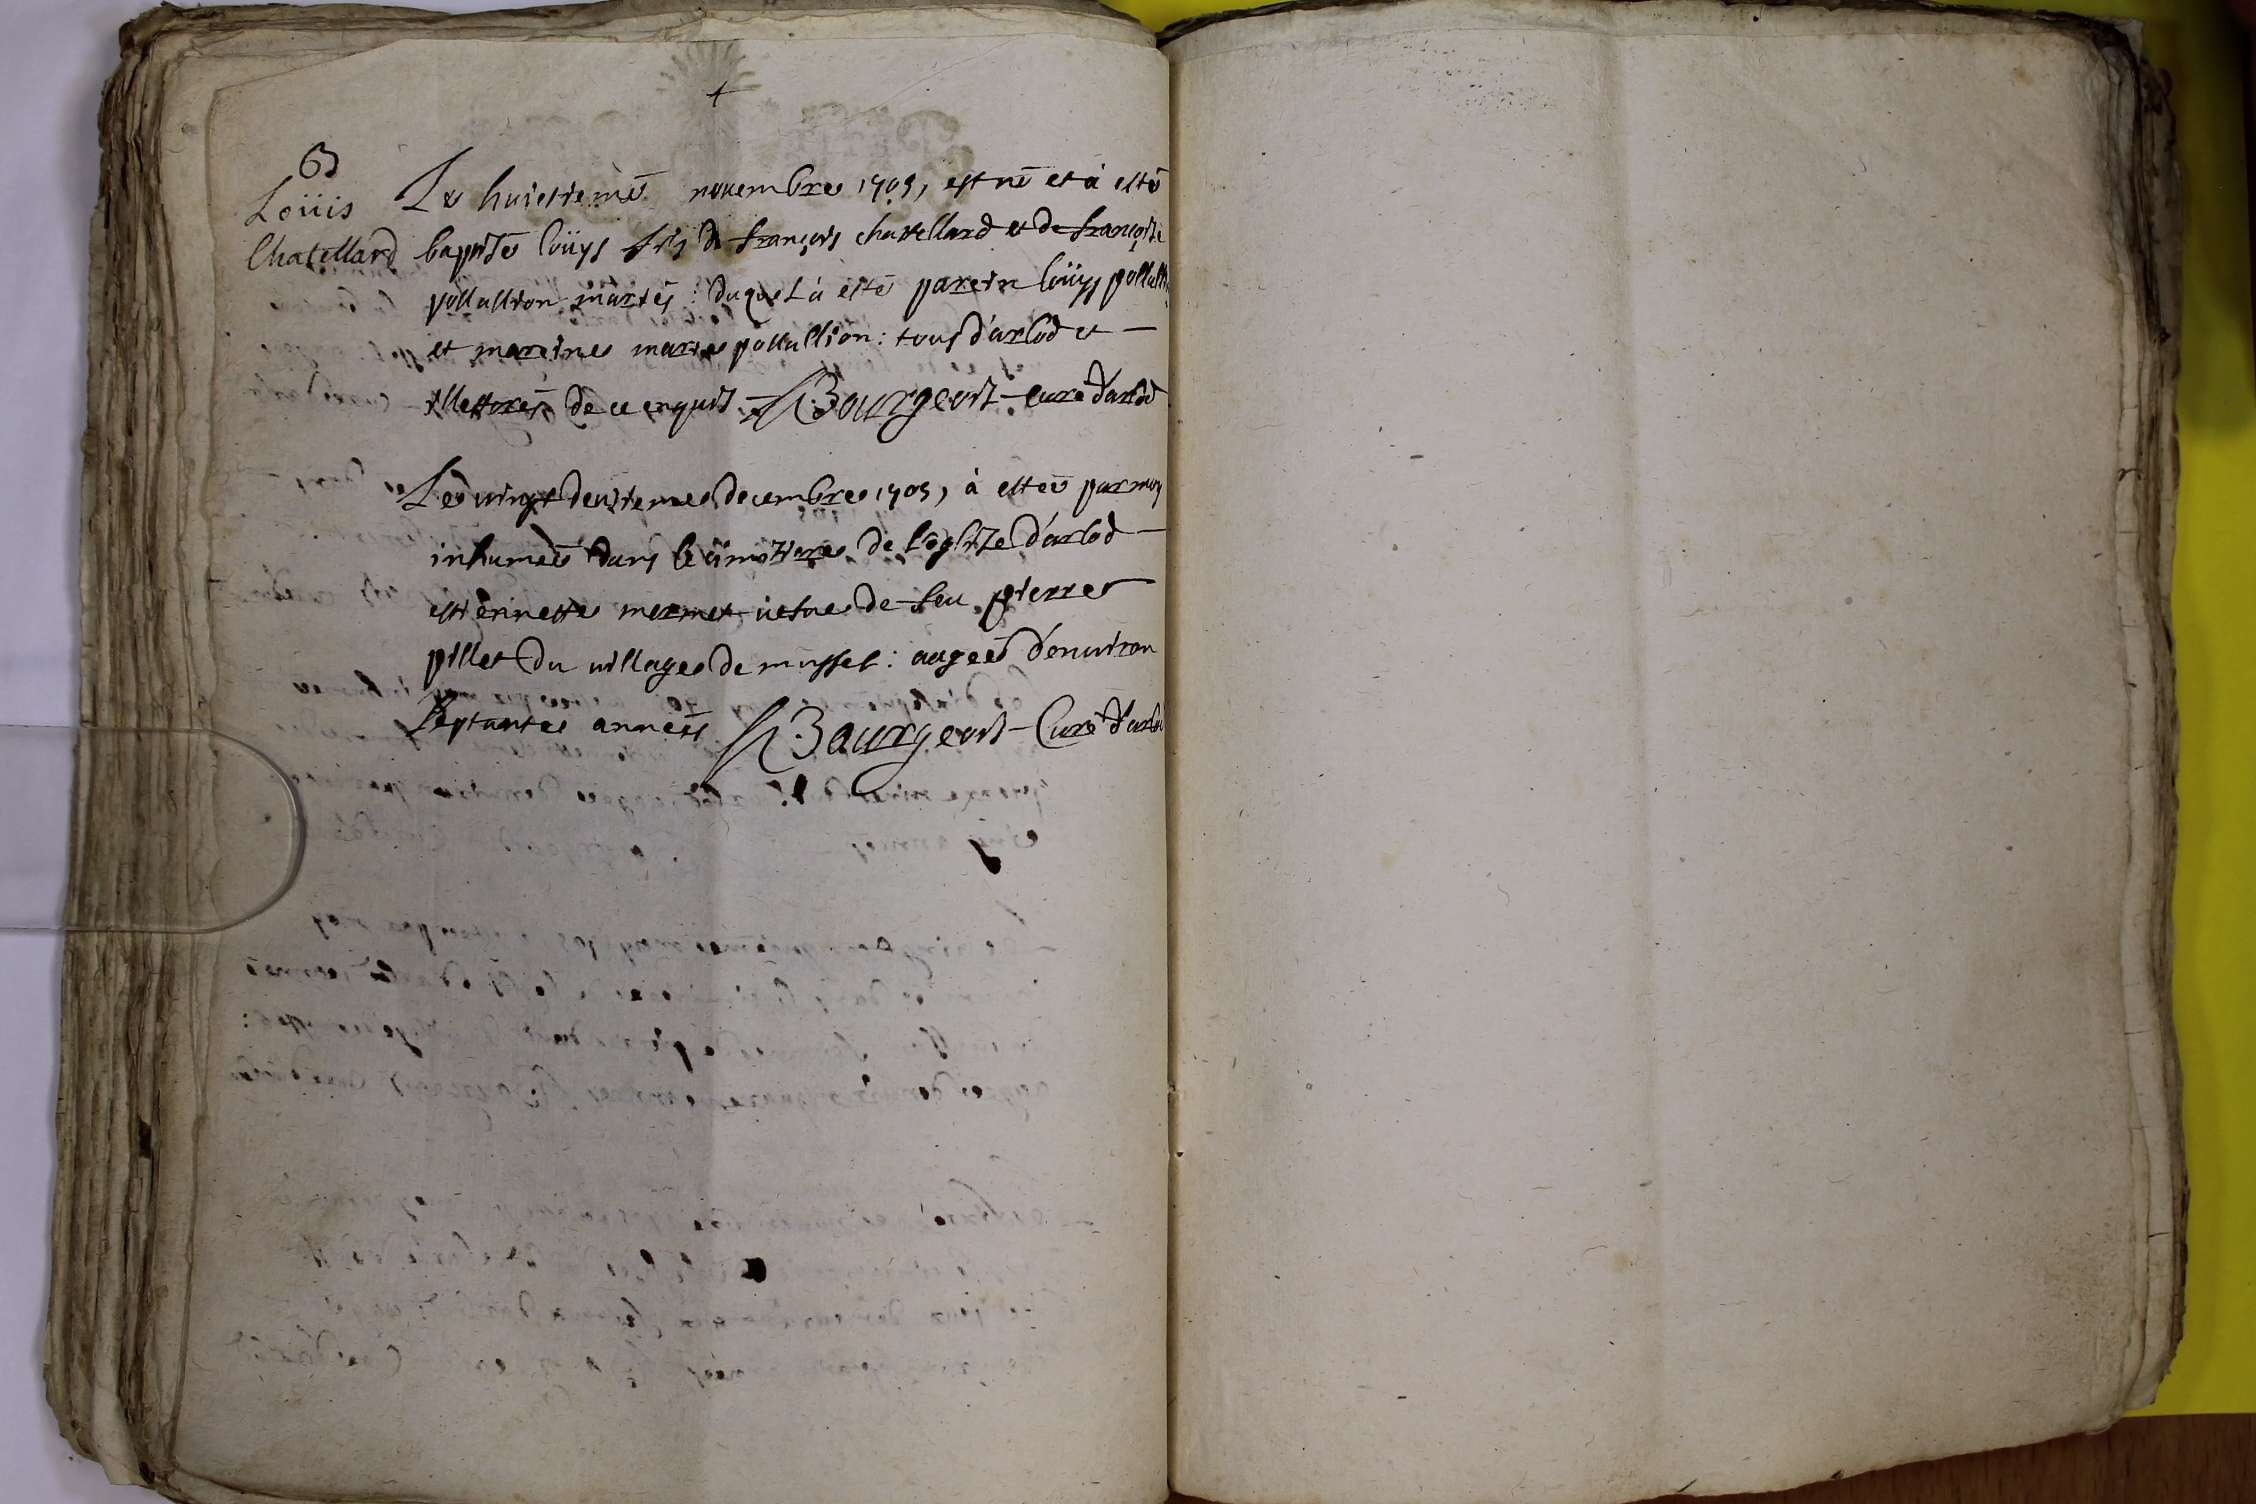 B
Loüis
Chatellard
Le huictiemé nouembre 1705, est né et à esté
baptisé loüys fils de françois chastellard et de françoise
pollallion mariés : duquel à esté parein loüys pollallion
et mareine marie pollallion : tous d'arlod et
illettrés de ce enquis Bourgeois curé d'arlod
Le vingt deuxieme decembre 1705, à esteé par moy
inhumeé dans le cimitiere de l'eglize d'arlod
estiennette mermet uefue de feu pierre
pillet du uillage de mussel : aageé d'enuiron
septante anneés Bourgeois Curé d'arlod